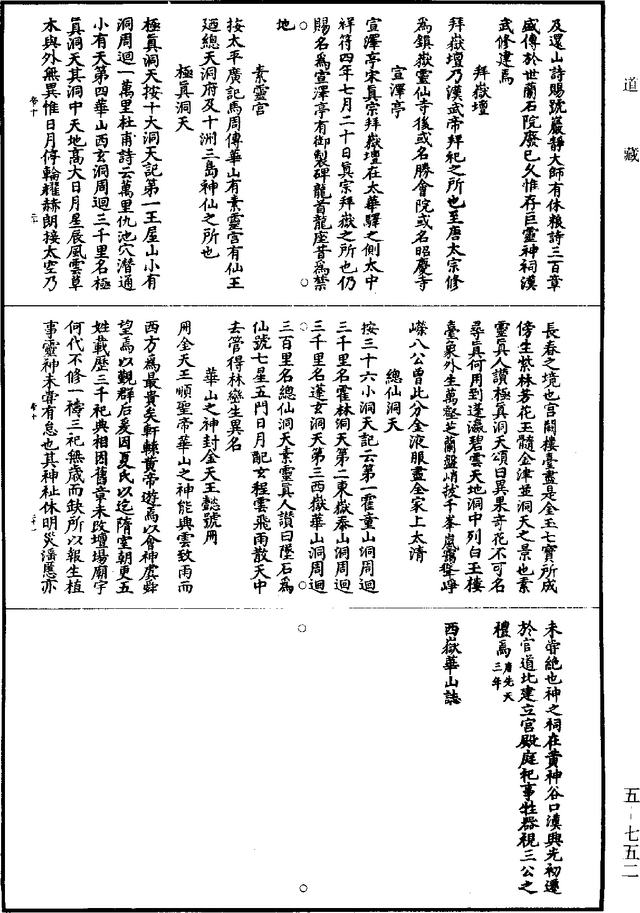 道藏
及還山詩賜號嚴靜大師有休粮詩三百章
盛傳於世蘭石院廢已久惟存巨靈神祠漢
武修建焉
拜嶽壇
拜嶽壇乃漢武帝拜祀之所也至唐太宗修
為鎮嶽靈仙寺後或名勝會院或名昭慶寺
宣澤亭
宣澤亭宋真宗拜嶽壇在太華驛之側太中
祥符四年七月二十日真宗拜嶽之所也仍
賜名為宣澤亭有御製碑龍首龍座昔為禁
地
素靈宮
按太平廣記馬周傳華山有素靈宮有仙王
廼總天洞府及十洲三島神仙之所也
極真洞天
極真洞天按十大洞天記第一王屋山小有
洞周迴一萬里杜甫詩云萬里仇池穴潛通
小有天第四華山西玄洞周迴三千里名極
真洞天其洞中天地高大日月星辰風雲草
木與外無異惟日月停輪耀赫朗接太空乃
長春之境也宮闕樓臺盡是金玉七寶所成
傍生紫林芳花玉髓金津並洞天之景也素
靈真人讚極真洞天頌曰異果奇花不可名
尋真何用到蓬瀛碧雲天地洞中列白玉樓
臺象外生萬壑芝蘭盤峭拔千峯嵐靄聳崢
嶸八公曾此分金液服盡全家上太清
總仙洞天
按三十六小洞天記云第一霍童山洞周迴
三千里名霍林洞天第二東嶽泰山洞周迴
三千里名蓬玄洞天第三西嶽華山洞周迴
三百里名總仙洞天素靈真人讚曰墜石為
仙號七星五門日月配玄程雲飛雨散天中
去管得林巒生異名
華山之神封金天王懿號冊
用金天王順聖帝華山之神能興雲致雨而
西方為最貴矣軒轅黃帝遊焉以會神虞舜
望焉以觀群后爰因夏氏以迄隋室朝更五
姓載歷三千祀典相因舊章未改壇場廟宇
何代不修一禱三祀無歲而缺所以報生植
事靈神未甞有怠也其神祉休明災滛應亦
未甞絕也神之祠在黃神谷口漢興光初遷
於官道北建立宮殿庭祀事牲器視三公之
禮焉唐先天三年
西嶽華山誌
五-七五二